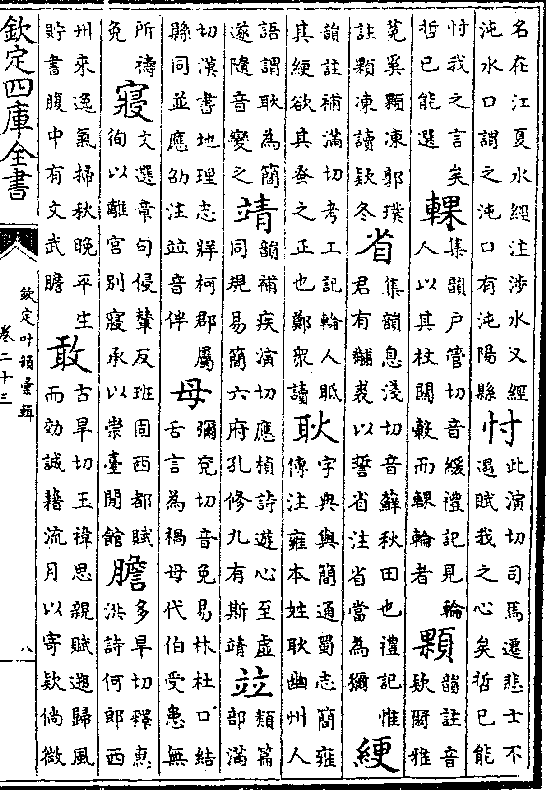 名在江夏水經注涉水又經
沌水口謂之沌口有沌陽縣
忖
此演切司馬遷悲士不
遇賦我之心矣哲已能
忖我之言矣
哲已能選
輠
集韻戶管切音緩禮記見輪
人以其杖關轂而輠輪者
顆
韻註音
欵爾雅
菟奚顆凍郭璞
註顆凍讀欵冬
省
集韻息淺切音蘚秋田也禮記惟
君有黼裘以誓省注省當為獮
綆
韻註補滿切考工記輪人眡
其綆欲其蚤之正也鄭衆讀
耿
字典與簡通蜀志簡雍
傳注雍本姓耿幽州人
語謂耿為簡
遂隨音變之
靖
韻補疾演切應楨詩遊心至虛
同規易簡六府孔修九有斯靖
竝
類篇
部滿
切漢書地理志牂柯郡屬
縣同並應劭注竝音伴
母
彌兖切音免易林杜口結
舌言為禍母代伯受患無
所禱
免
寢
文選章句侵輦反班固西都賦
徇以離宮別寢承以崇臺閒館
膽
多旱切釋惠
洪詩何郎西
州來逸氣掃秋晚平生
貯書腹中有文武膽
敢
古旱切王禕思親賦遡歸風
而効誠藉流月以寄欵倘微
欽定四庫全書
欽定叶韻彙輯
卷二十三
八